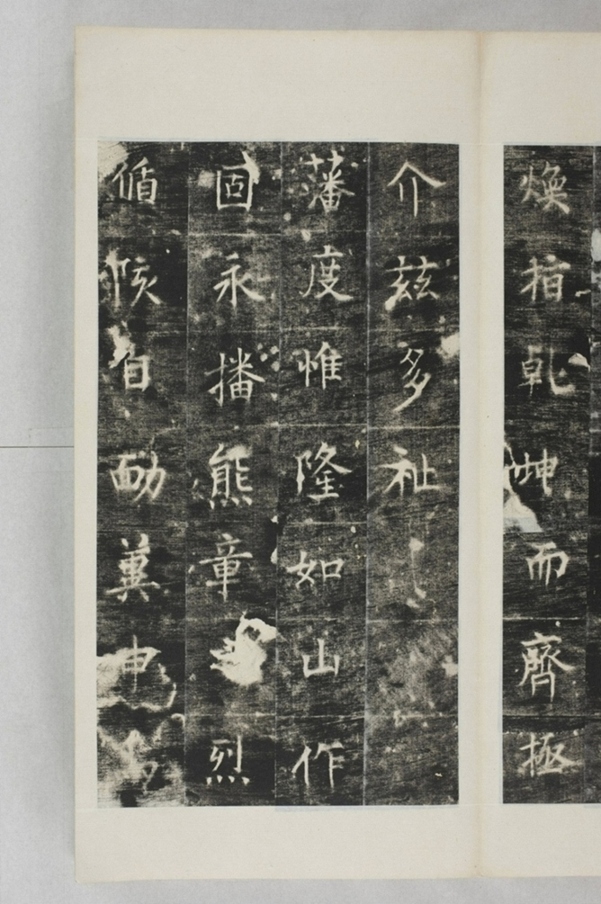 煥指乾坤而齊極
介茲多祉
藩度惟隆如山作
固永播熊章烈
循核自勵冀申